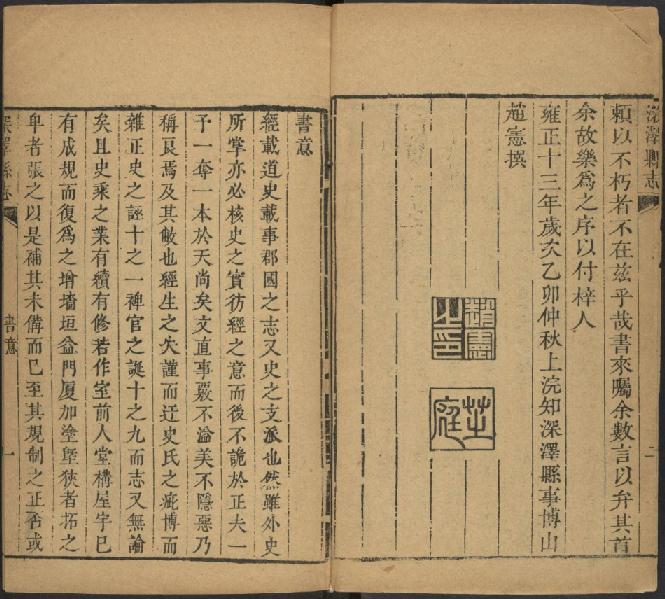 深澤縣志
二
賴以不朽者不在茲乎哉書來囑余數言以弁其首
余故樂爲之序以付梓人
雍正十三年歲次乙卯仲秋上浣知深澤縣事博山
趙憲撰
趙憲之印
書意
經載道史載事郡國之志又史之支派也然雖外史
所掌亦必核史之實彷經之意而後不詭於正夫一
予一奪一本於天尚矣文直事覈不溢美不隱惡乃
稱良焉及其敝也經生之失謹而迂史氏之疵博而
雜正史之誣十之一稗官之誕十之九而志又無論
矣且史乘之業有續有修若作室前人堂構屋宇巳
有成規而復爲之增墻垣益門厦加塗塈狹者拓之
卑者張之以是補其未備而巳至其規制之正否或
深澤縣志
書意
一